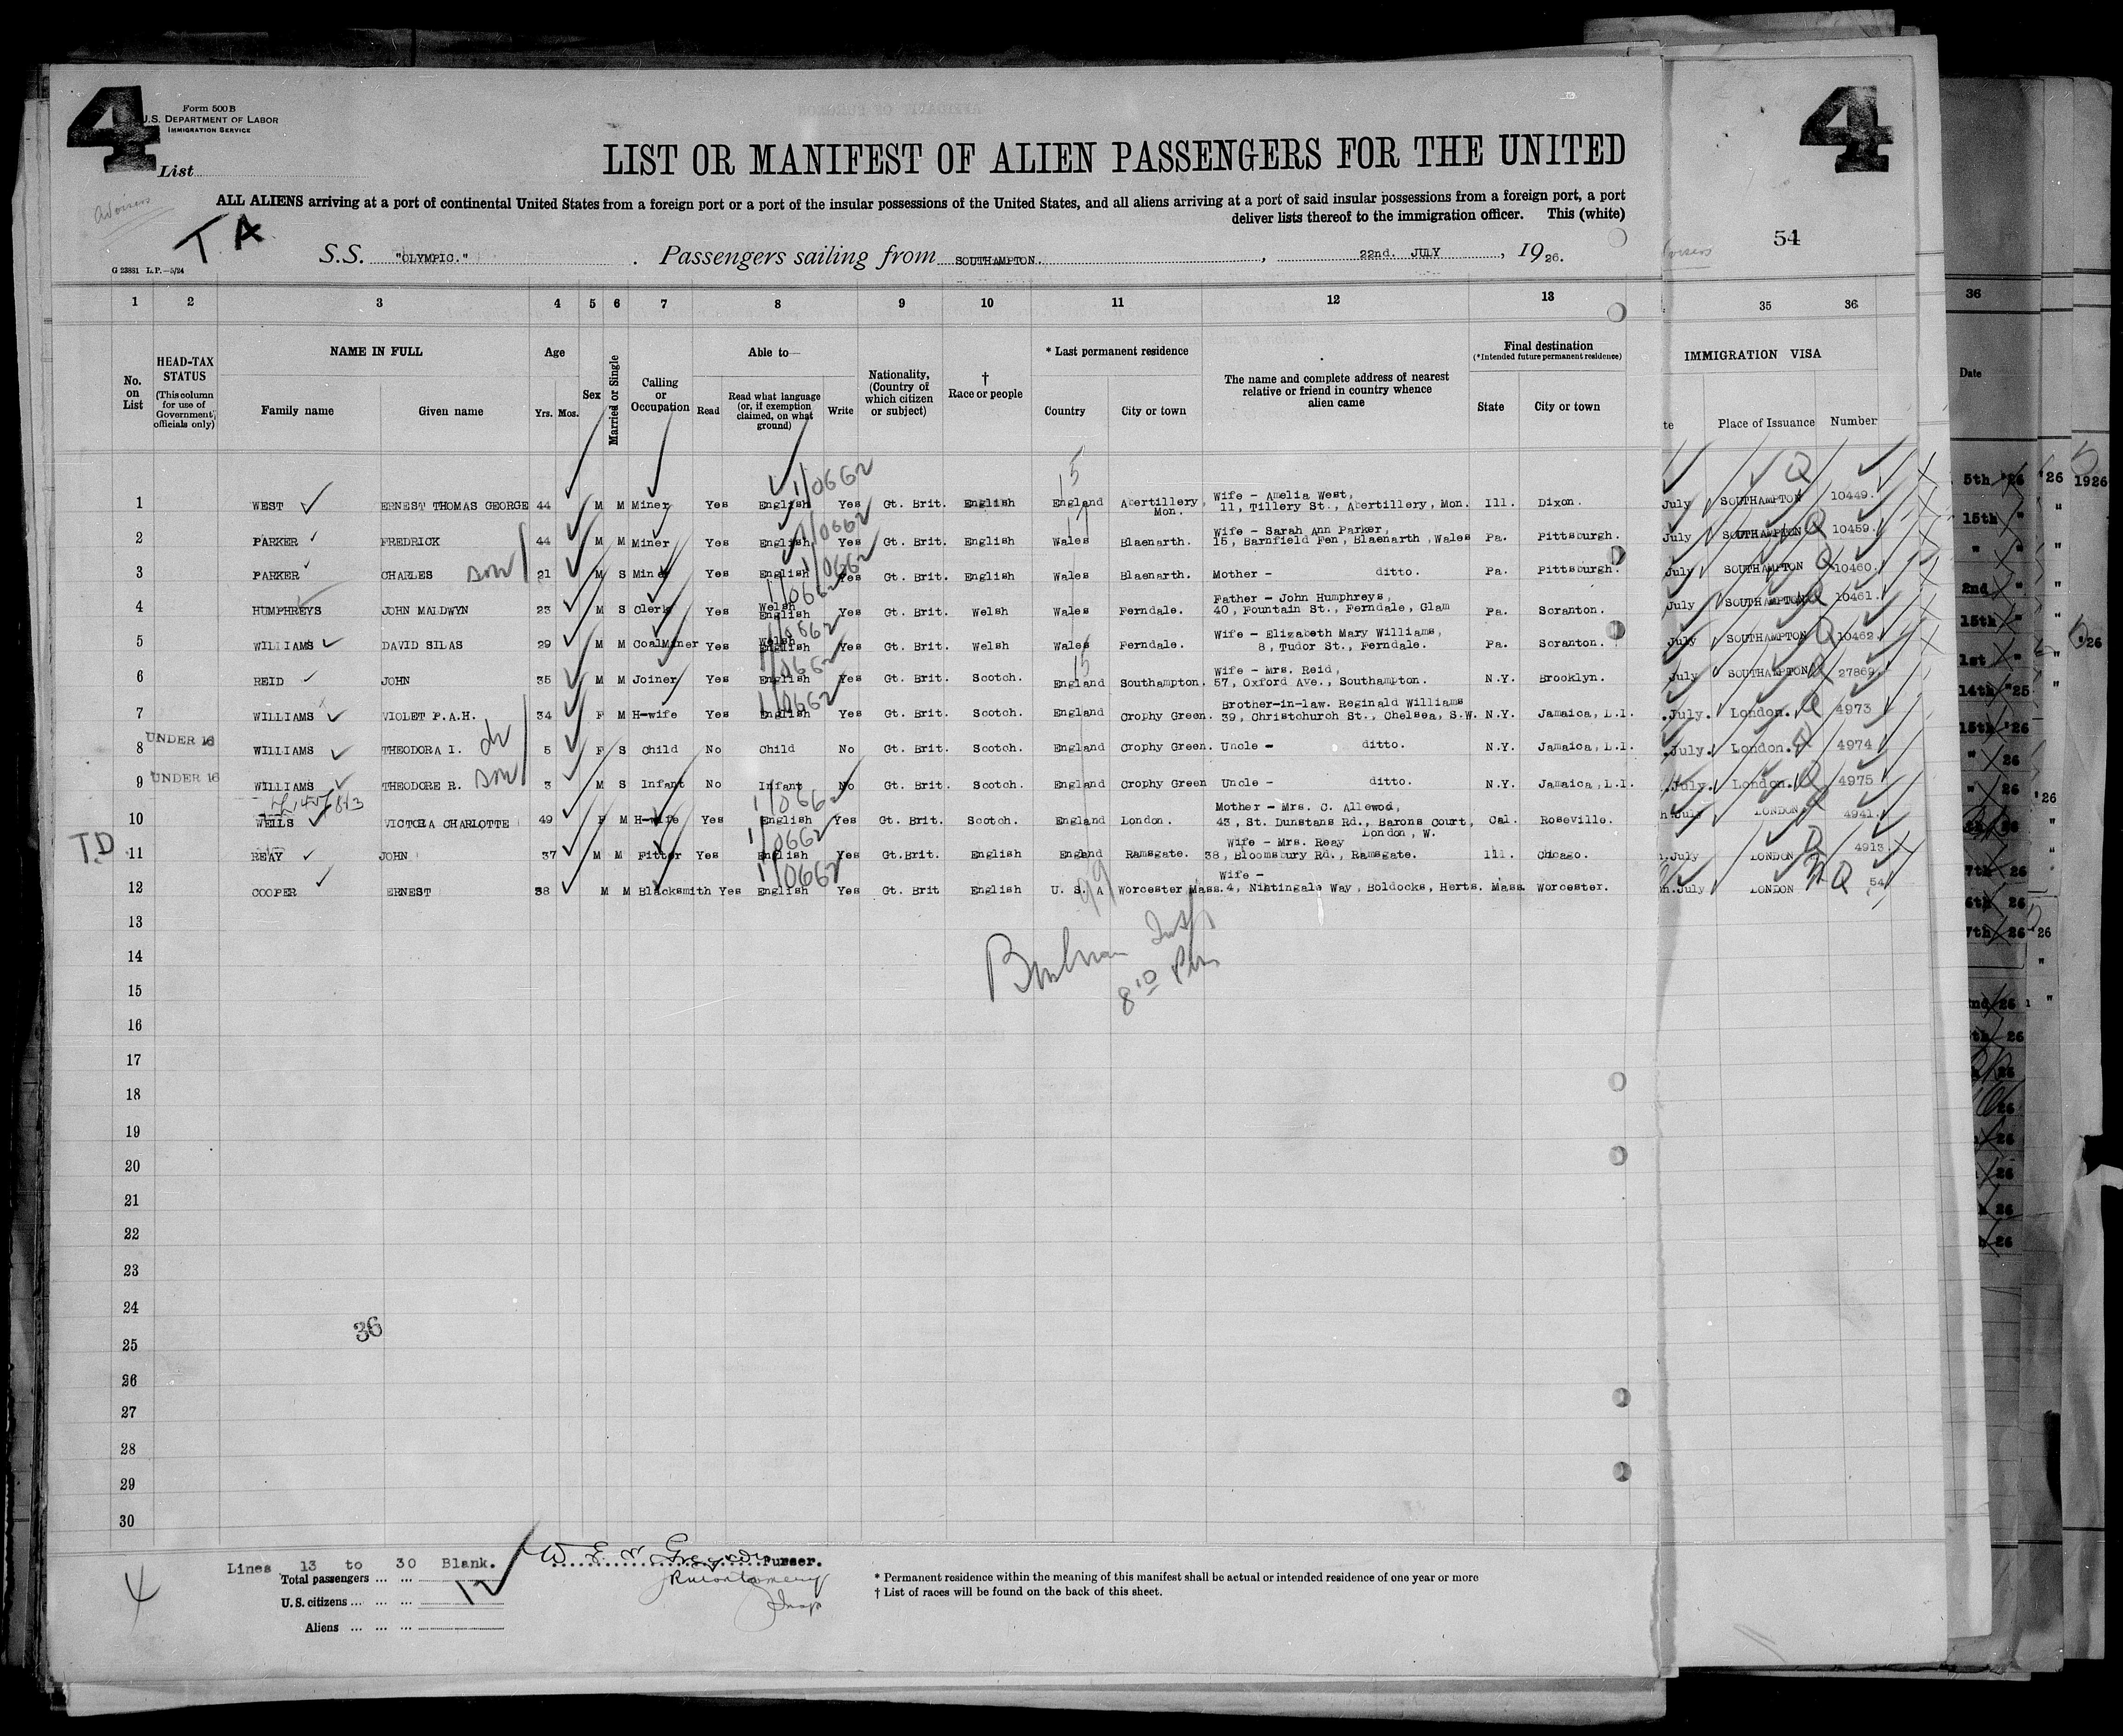 4
Form 500B
U.S. DEPARTMENT OF LABOR
IMMIGRATION SERVICE
List
LIST OR MANIFEST OF ALIEN PASSENGERS FOR THE UNITED
ALL ALIENS arriving at a port of continental United States from a foreign port or a port of the insular possessions of the United States, and all aliens arriving at a port of said insular possessions from a foreign port, a port
deliver lists thereof to the immigration officer. This (white)
T A
S.S. "OLYMPIC." Passengers sailing from SOUTHAMPTON. , 22nd. JULY , 1926.
G 23881 L.P.—5/24
4
54
1 2 3 4 5 6 7 8 9 10 11 12 13 35 36
No. on List
HEAD-TAX STATUS (This column for use of Government officials only)
NAME IN FULL
Family name Given name
Age
Yrs. Mos.
Sex
Married or Single
Calling or Occupation
Able to—
Read
Read what language (or, if exemption claimed, on what ground)
Write
Nationality, (Country of which citizen or subject)
† Race or people
* Last permanent residence
Country City or town
The name and complete address of nearest relative or friend in country whence alien came
Final destination
(*Intended future permanent residence)
State City or town
IMMIGRATION VISA
te Place of Issuance Number
36
Date
1 WEST ERNEST THOMAS GEORGE 44 M M Miner Yes English Yes Gt. Brit. English England Abertillery, Mon. Wife - Amelia West, 11, Tillery St., Abertillery, Mon. Ill. Dixon. July SOUTHAMPTON 10449.
2 PARKER FREDRICK 44 M M Miner Yes English Yes Gt. Brit. English Wales Blaenarth. Wife - Sarah Ann Parker, 15, Barnfield Fen, Blaenarth, Wales Pa. Pittsburgh. July SOUTHAMPTON 10459.
3 PARKER CHARLES son 21 M S Miner Yes English Yes Gt. Brit. English Wales Blaenarth. Mother - ditto. Pa. Pittsburgh. July SOUTHAMPTON 10460.
4 HUMPHREYS JOHN MALDWYN 23 M S Clerk Yes Welsh English Yes Gt. Brit. Welsh Wales Ferndale. Father - John Humphreys, 40, Fountain St., Ferndale, Glam Pa. Scranton. July SOUTHAMPTON 10461.
5 WILLIAMS DAVID SILAS 29 M M CoalMiner Yes Welsh English Yes Gt. Brit. Welsh Wales Ferndale. Wife - Elizabeth Mary Williams, 8, Tudor St., Ferndale. Pa. Scranton. July SOUTHAMPTON 10462.
6 REID JOHN 35 M M Joiner Yes English Yes Gt. Brit. Scotch. England Southampton. Wife - Mrs. Reid, 57, Oxford Ave., Southampton. N.Y. Brooklyn. July SOUTHAMPTON 27869.
7 WILLIAMS VIOLET P.A.H. 34 F M H-wife Yes English Yes Gt. Brit. Scotch. England Crophy Green. Brother-in-law. Reginald Williams 39, Christchurch St., Chelsea, S.W. N.Y. Jamaica, L.I. .July. London. 4973
UNDER 16
8 WILLIAMS THEODORA I. 5 F S Child No Child No Gt. Brit. Scotch. England Crophy Green. Uncle - ditto. N.Y. Jamaica, L.I. .July. London. 4974
UNDER 16
9 WILLIAMS THEODORE R. son 3 M S Infant No Infant No Gt. Brit. Scotch. England Crophy Green Uncle - ditto. N.Y. Jamaica, L.I. .July. London. 4975
10 WELLS VICTORA CHARLOTTE 49 F M H-wife Yes English Yes Gt. Brit. Scotch. England London. Mother - Mrs. C. Allewod, 43, St. Dunstans Rd., Barons Court, London, W. Cal. Roseville. July LONDON 4941.
T.D
11 REAY JOHN 37 M M Fitter Yes English Yes Gt.Brit. English England Ramsgate. Wife - Mrs. Reay 38, Bloomsbury Rd., Ramsgate. Ill. Chicago. July LONDON 4913
12 COOPER ERNEST 38 M M Blacksmith Yes English Yes Gt. Brit English U. S. A Worcester Mass. Wife - 4, Nintingale Way, Boldocks, Herts. Mass. Worcester. July LONDON 54
13
14
15
16
17
18
19
20
21
22
23
24
36
25
26
27
28
29
30
Lines 13 to 30 Blank.
Purser.
Total passengers ... ... 12
U.S. citizens ... ... ...
Aliens ... ... ...
* Permanent residence within the meaning of this manifest shall be actual or intended residence of one year or more
† List of races will be found on the back of this sheet.